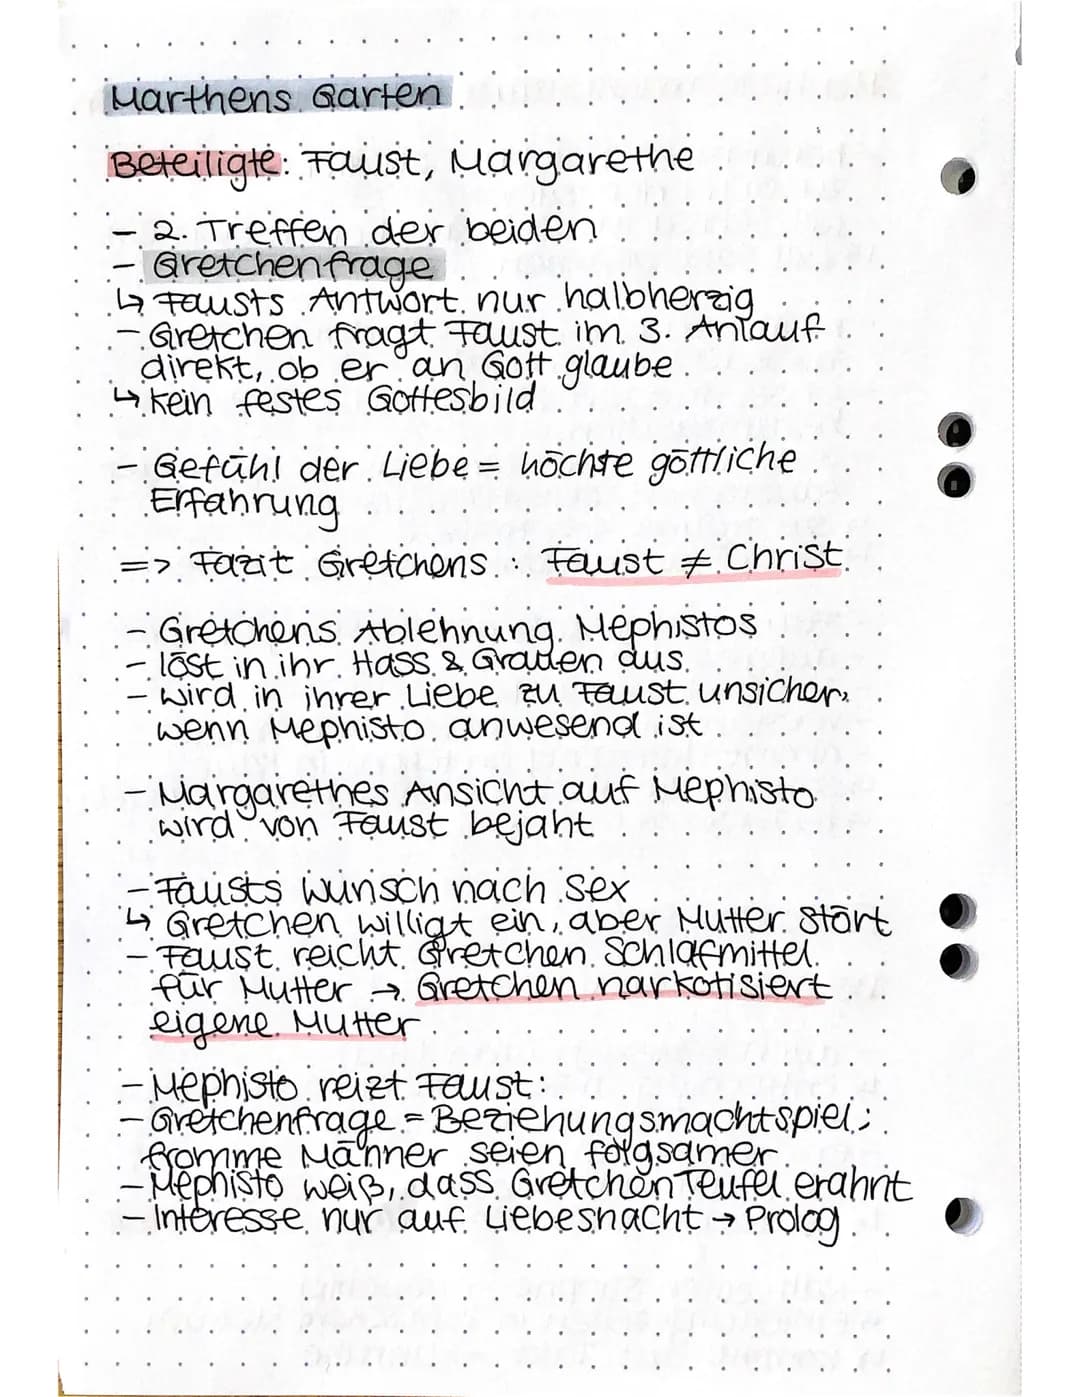 Marthens Garten
Beteiligte: Faust, Margarethe
- 2. Treffen der beiden
- Gretchenfrage
↳ Fausts Antwort nur halbherzig
- Gretchen fragt Faust im 3. Anlauf
direkt, ob er an Gott glaube
↳ kein festes Gottesbild
- Gefühl der Liebe = höchste göttliche
Erfahrung
=> Fazit Gretchens: Faust ≠ Christ
- Gretchens Ablehnung Mephistos
- löst in ihr Hass & Grauen aus
- wird in ihrer Liebe zu Faust unsicher,
wenn Mephisto anwesend ist
- Margarethes Ansicht auf Mephisto
wird von Faust bejaht
- Fausts Wunsch nach Sex
↳ Gretchen willigt ein, aber Mutter stört
- Faust reicht Gretchen Schlafmittel
für Mutter → Gretchen narkotisiert
eigene Mutter
- Mephisto reizt Faust:
- Gretchenfrage = Beziehungsmachtspiel;
fromme Männer seien folgsamer
- Mephisto weiß, dass Gretchen Teufel erahnt
- Interesse nur auf Liebesnacht → Prolog